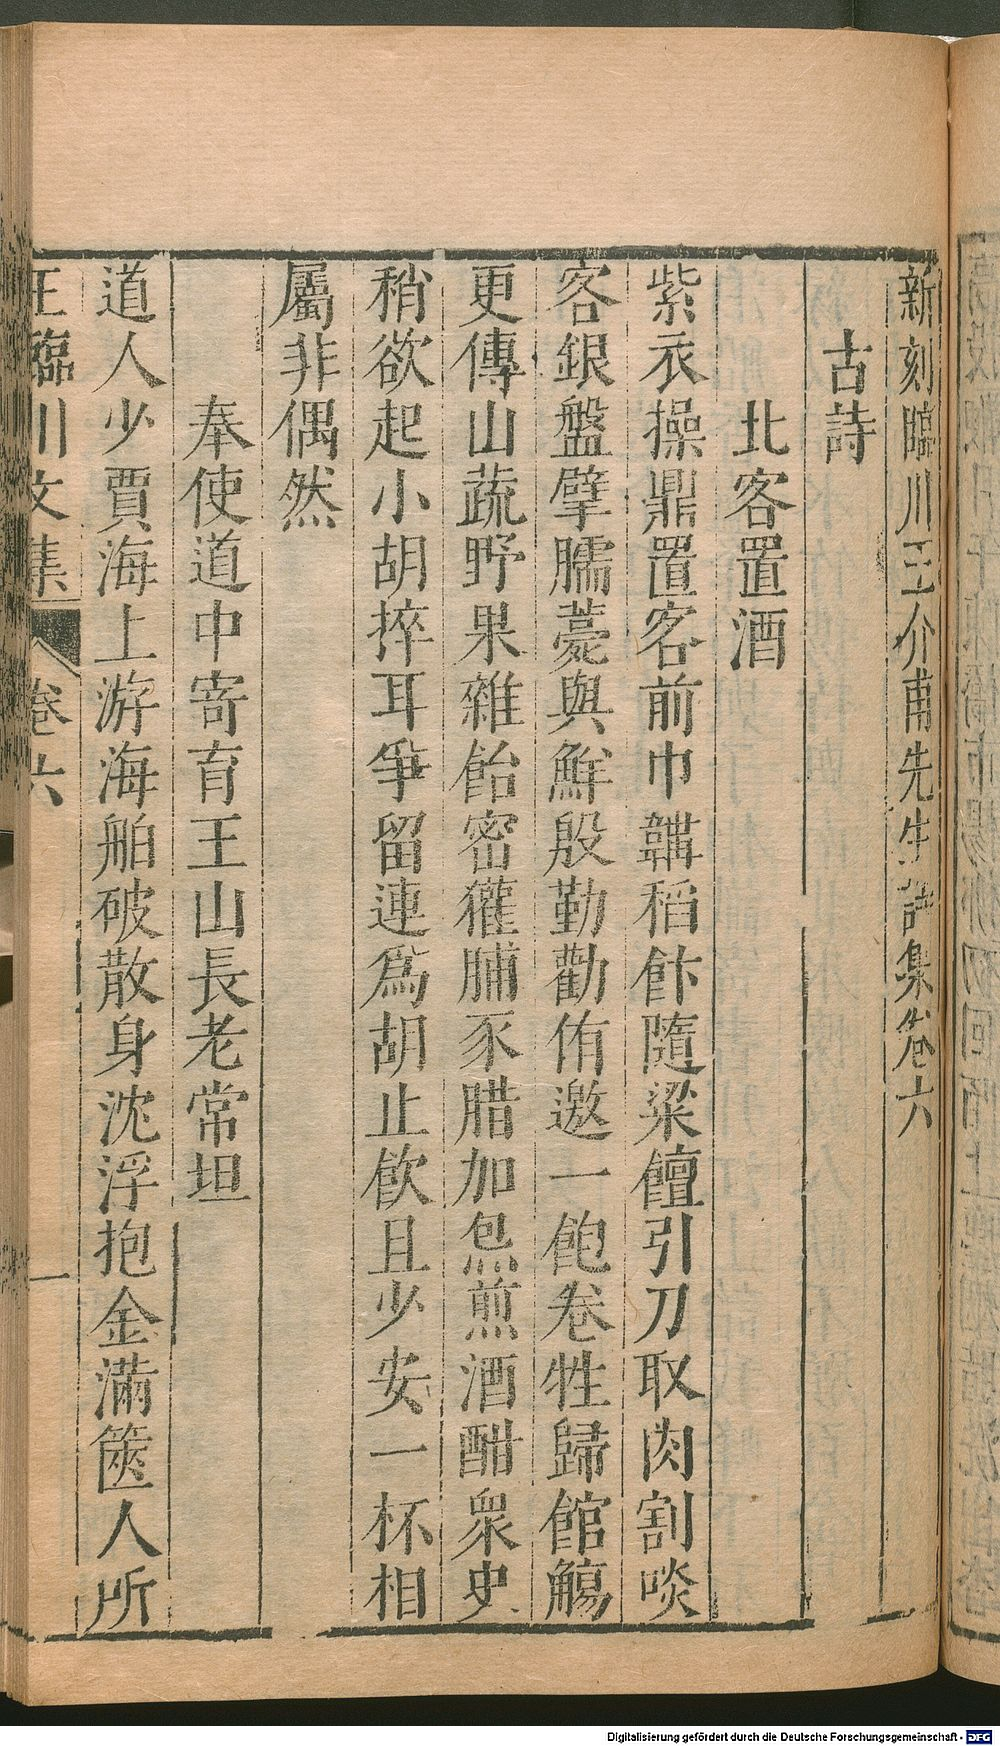 新刻臨川王介甫先生詩集卷六
古詩
北客置酒
紫衣操鼎置客前巾韝稻飰隨粱饘引刀取肉割啖
客銀盤擘臑薧與鮮殷勤勸侑邀一飽卷牲歸館觴
更傳山蔬野果雜飴蜜獾脯豕腊加炰煎酒酣衆史
稍欲起小胡捽耳爭留連爲胡止飮且少安一杯相
屬非偶然
奉使道中寄育王山長老常坦
道人少賈海上游海舶破散身沈浮抱金滿篋人所
王臨川文集
卷六
一
Digitalisierung gefördert durch die Deutsche Forschungsgemeinschaft - DFG